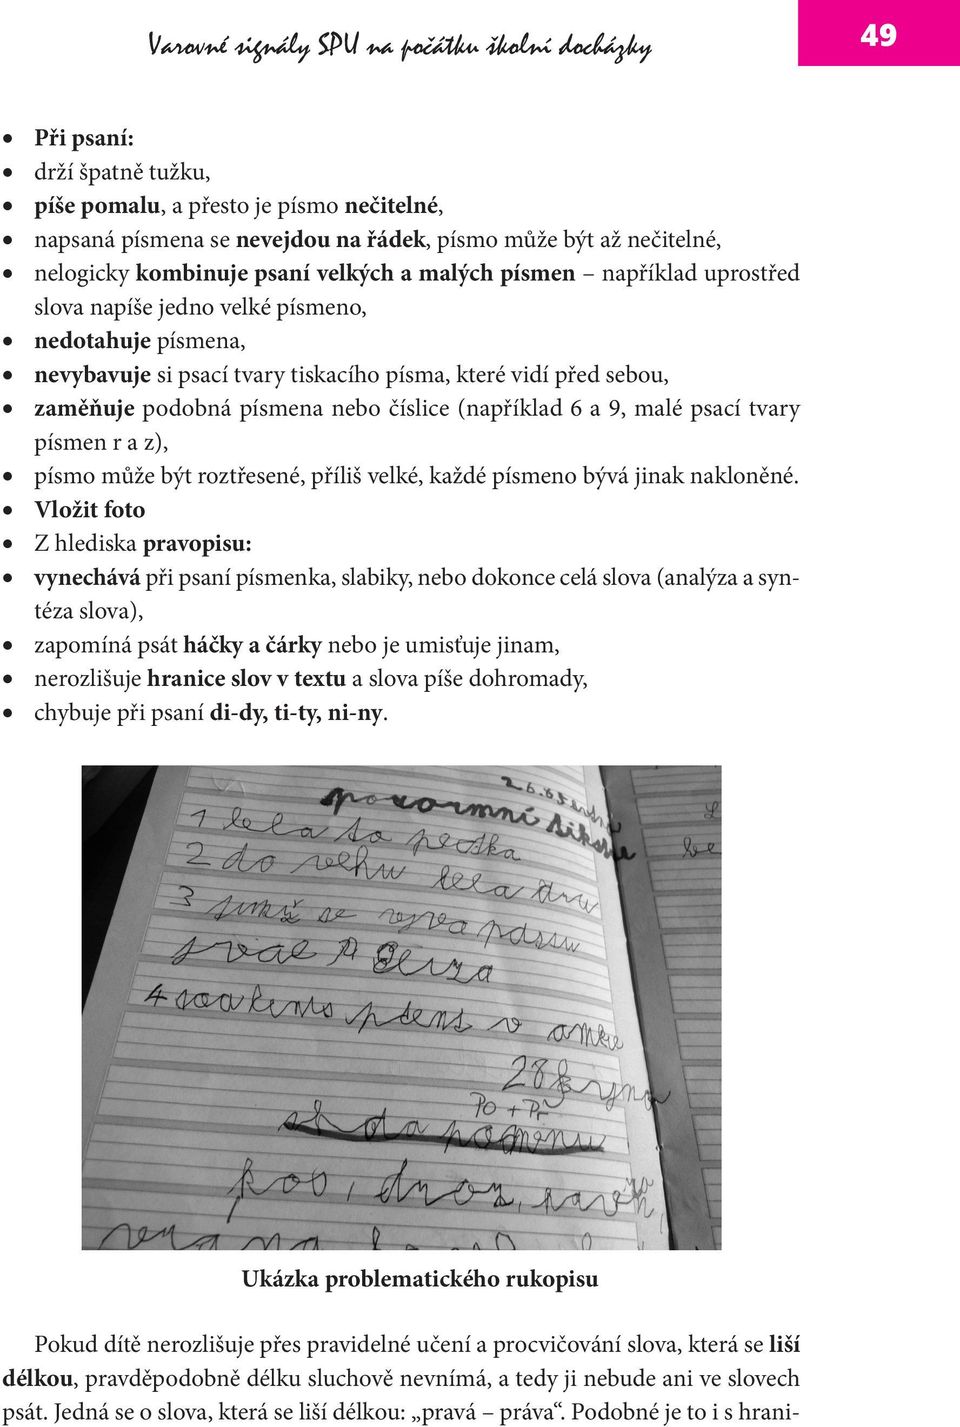 Varovné signály SPU na počátku školní docházky
49
• Při psaní:
• drží špatně tužku,
• píše pomalu, a přesto je písmo nečitelné,
• napsaná písmena se nevejdou na řádek, písmo může být až nečitelné,
• nelogicky kombinuje psaní velkých a malých písmen – například uprostřed
slova napíše jedno velké písmeno,
• nedotahuje písmena,
• nevybavuje si psací tvary tiskacího písma, které vidí před sebou,
• zaměňuje podobná písmena nebo číslice (například 6 a 9, malé psací tvary
písmen r a z),
• písmo může být roztřesené, příliš velké, každé písmeno bývá jinak nakloněné.
• Vložit foto
• Z hlediska pravopisu:
• vynechává při psaní písmenka, slabiky, nebo dokonce celá slova (analýza a syn-
téza slova),
• zapomíná psát háčky a čárky nebo je umisťuje jinam,
• nerozlišuje hranice slov v textu a slova píše dohromady,
• chybuje při psaní di-dy, ti-ty, ni-ny.
1 lela to
2 do lela
3 se
4 v
28
Po + Př
Ukázka problematického rukopisu
Pokud dítě nerozlišuje přes pravidelné učení a procvičování slova, která se liší
délkou, pravděpodobně délku sluchově nevnímá, a tedy ji nebude ani ve slovech
psát. Jedná se o slova, která se liší délkou: „pravá – práva“. Podobné je to i s hrani-